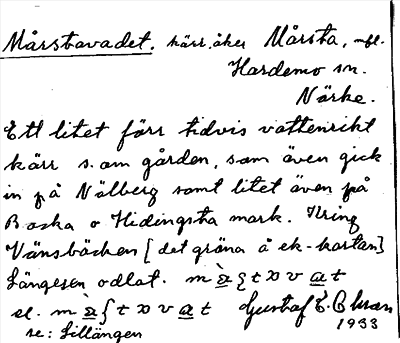 Mårstavadet. kärr, åker Mårsta, mfl.
Hardemo sn.
Närke.
Ett litet förr tidvis vattenrikt
kärr s. om gården, som även gick
in på Nälberg samt litet även på
Backa o Hidingsta mark. Kring
Vänsbäcken [det gröna å ek-kartan]
Längesen odlat.
el.
Gustaf T. Ekman
1933
se: Lillängen